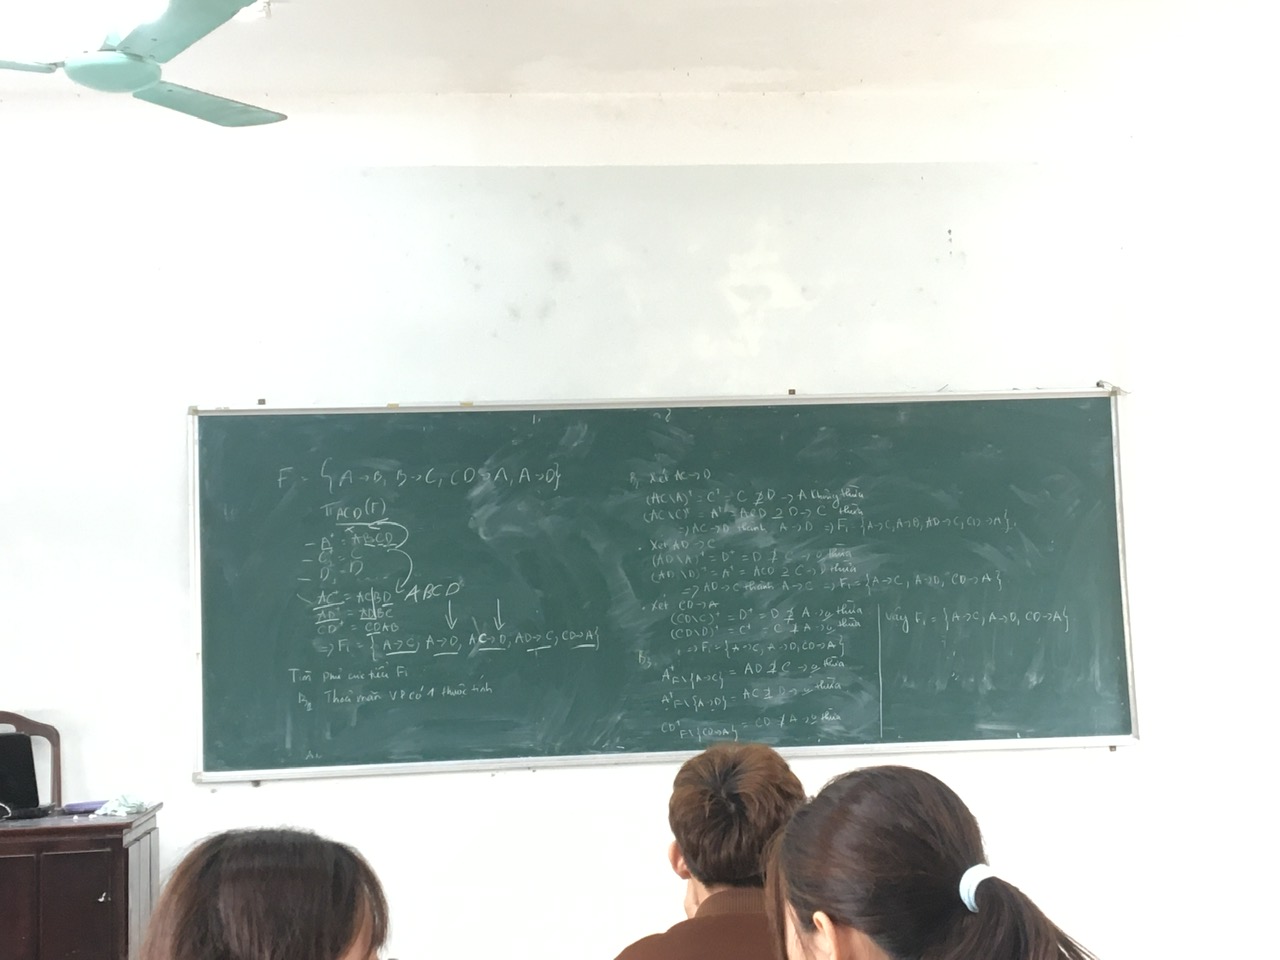 F = { A→D, B→C, CD→A, A→D}
π ACD (F)
- A⁺ = ABCD
- C⁺ = C
- D⁺ = D
AC⁺ = ACBD ABCD
AD⁺ = ADBC
CD⁺ = CDAB
⇒ F₁ = { A→C, A→D, AC→D, AD→C, CD→A}
Tìm phủ cực tiểu F₁
Thoả mãn VP có 1 thuộc tính
B₂ Xét AC→D
(AC\A)⁺ = C⁺ = C ⊉ D → A không thừa
(AC\C)⁺ = A⁺ = ACD ⊇ D → C thừa
⇒ AC→D thành A→D ⇒ F₁ = {A→C, A→D, AD→C, CD→A}.
. Xét AD→C
(AD\A)⁺ = D⁺ = D ⊉ C → ø thừa
(AD\D)⁺ = A⁺ = ACD ⊇ C → D thừa
⇒ AD→C thành A→C ⇒ F₁ = {A→C, A→D, CD→A}
. Xét CD→A
(CD\C)⁺ = D⁺ = D ⊉ A → ø thừa
(CD\D)⁺ = C⁺ = C ⊉ A → ø thừa
⇒ F₁ = {A→C, A→D, CD→A}
B₃
A⁺ F\{A→C} = AD ⊉ C → ø thừa
A⁺ F\{A→D} = AC ⊉ D → ø thừa
CD⁺ F\{CD→A} = CD ⊉ A → ø thừa
Vậy F₁ = {A→C, A→D, CD→A}